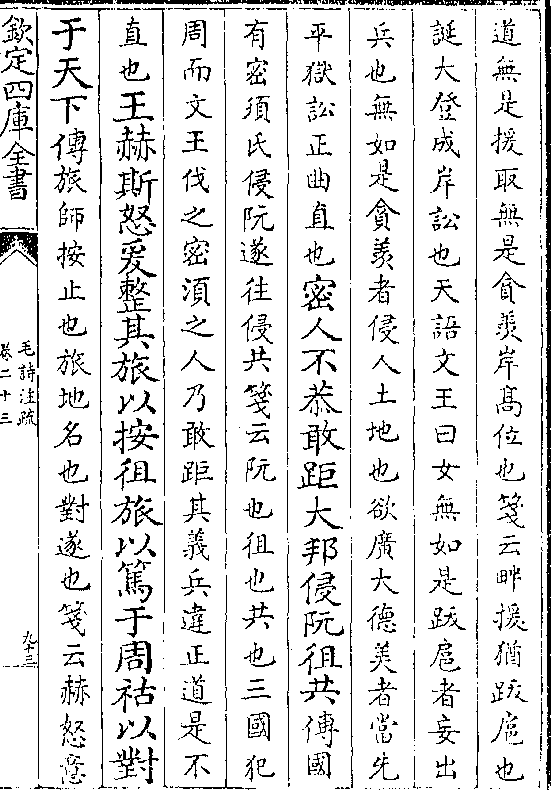 道無是援取無是貪羨岸髙位也箋云畔援猶跋扈也
誕大登成岸訟也天語文王曰女無如是跋扈者妄出
兵也無如是貪羨者侵人土地也欲廣大德美者當先
平獄訟正曲直也密人不恭敢距大邦侵阮徂共傳國
有密須氏侵阮遂往侵共箋云阮也徂也共也三國犯
周而文王伐之密湏之人乃敢距其義兵違正道是不
直也王赫斯怒爰整其旅以按徂旅以篤于周祜以對
于天下傳旅師按止也旅地名也對遂也箋云赫怒意
欽定四庫全書
毛詩注疏
卷二十三
九十三